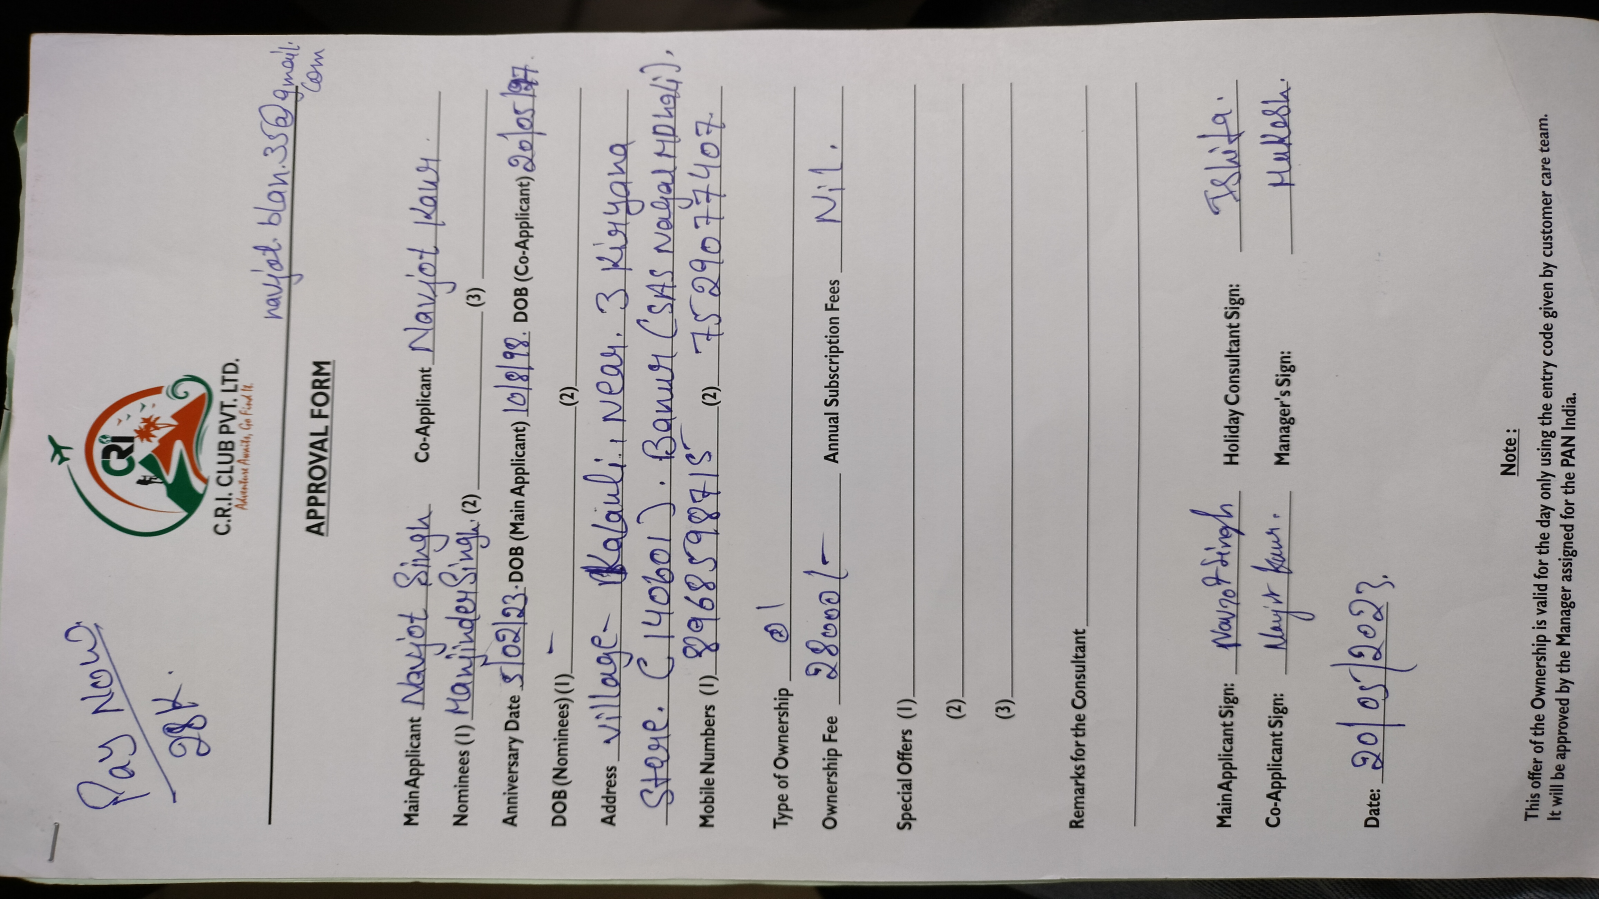 Pay Now
28K.
CRI
C.R.I. CLUB PVT. LTD.
Adventure Awaits, Go Find It.
navjot.blan.35@gmail.
com
APPROVAL FORM
Main Applicant Navjot Singh Co-Applicant Navjot Kaur.
Nominees (1) Manjinder Singh. (2) (3)
Anniversary Date 5/02/23. DOB (Main Applicant) 10/8/98. DOB (Co-Applicant) 20/05/97.
DOB (Nominees) (1) – (2)
Address Village- Kalauli. Near. 3 Kiryana
Store. (140601). Banur (SAS Nagar Mohali).
Mobile Numbers (1) 8968598715 (2) 7529077407
Type of Ownership
Ownership Fee 28000/- Annual Subscription Fees Nil.
Special Offers (1)
(2)
(3)
Remarks for the Consultant
Main Applicant Sign: Navjot Singh Holiday Consultant Sign: Ishita.
Co-Applicant Sign: Navjot Kaur. Manager's Sign: Mukesh.
Date: 20/05/2023.
Note :
This offer of the Ownership is valid for the day only using the entry code given by customer care team.
It will be approved by the Manager assigned for the PAN India.